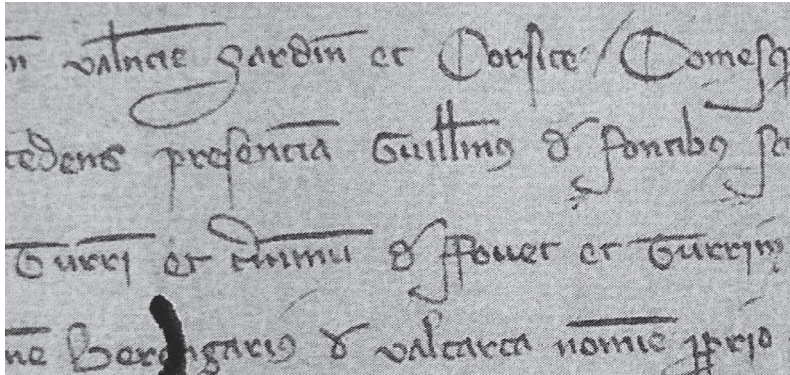 valncie Sardin et Corsice / Comesq
cedens presencia Guillmꝯ d' fontibꝯ
Gurri et d' ffouet et Gurrimꝯ
ne Berengariꝯ d' valcarca nomie ꝓprio